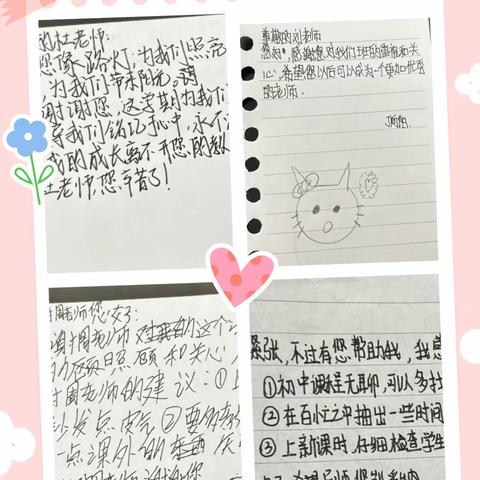 的杜老师:
您像路灯,为我们照亮
为我们带来阳光。
谢谢您,这学期为我们
我们铭记于心中,永不
我的成长离不开您的教
老师,您辛苦了!
尊敬的刘老师
您好,感谢您对我们班的重视和关
心,希望您以后可以成为一个更加优秀
的老师.
周老师您好:
周老师对我的这个
的照顾和关心
周老师的建议:①
少发点皮气②要多
一点课外的东西
紧张,不过有您帮助我,我感
①初中课程无聊,可以多
②在百忙之中抽出一些时间
③上新课时,仔细检查学生